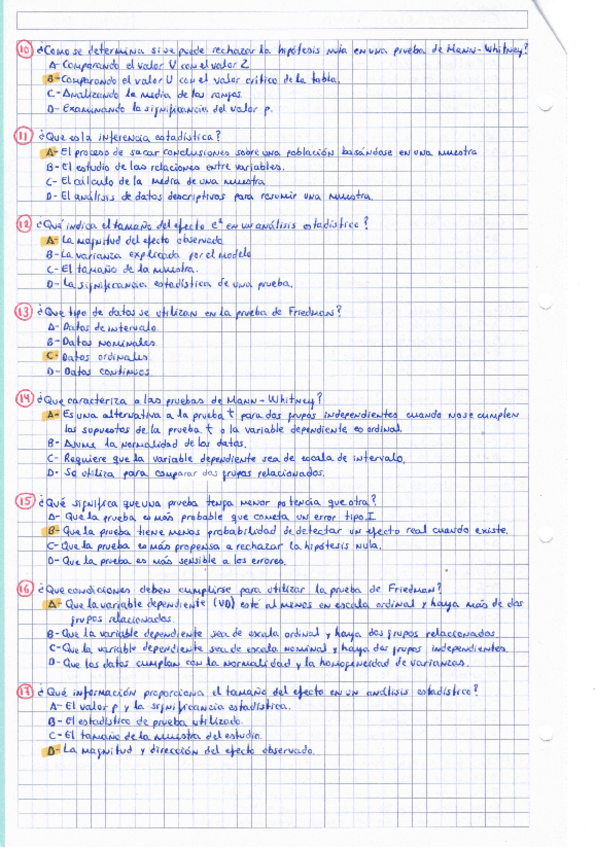 10) ¿Como se determina si se puede rechazar la hipótesis nula en una prueba de Mann-Whitney?
A- Comparando el valor U con el valor Z
B- Comparando el valor U con el valor crítico de la tabla.
C- Analizando la media de los rangos.
D- Examinando la significancia del valor p.
11) ¿Que es la inferencia estadística?
A- El proceso de sacar conclusiones sobre una población basándose en una muestra
B- El estudio de las relaciones entre variables.
C- El cálculo de la media de una muestra
D- El análisis de datos descriptivos para resumir una muestra.
12) ¿Qué indica el tamaño del efecto e² en un análisis estadístico?
A- La magnitud del efecto observado
B- La varianza explicada por el modelo
C- El tamaño de la muestra.
D- La significancia estadística de una prueba.
13) ¿Que tipo de datos se utilizan en la prueba de Friedman?
A- Datos de intervalo.
B- Datos nominales.
C- Datos ordinales.
D- Datos continuos
14) ¿Que caracteriza a las pruebas de Mann-Whitney?
A- Es una alternativa a la prueba t para dos grupos independientes cuando no se cumplen
los supuestos de la prueba t o la variable dependiente es ordinal.
B- Asume la normalidad de los datos.
C- Requiere que la variable dependiente sea de escala de intervalo.
D- Se utiliza para comparar dos grupos relacionados.
15) ¿Qué significa que una prueba tenga menor potencia que otra?
A- Que la prueba es más probable que cometa un error tipo I
B- Que la prueba tiene menos probabilidad de detectar un efecto real cuando existe.
C- Que la prueba es más propensa a rechazar la hipótesis nula.
D- Que la prueba es más sensible a los errores.
16) ¿Que condiciones deben cumplirse para utilizar la prueba de Friedman?
A- Que la variable dependiente (VD) esté al menos en escala ordinal y haya más de dos
grupos relacionados.
B- Que la variable dependiente sea de escala ordinal y haya dos grupos relacionados
C- Que la variable dependiente sea de escala nominal y haya dos grupos independientes.
D- Que los datos cumplan con la normalidad y la homogeneidad de varianzas.
17) ¿Qué información proporciona el tamaño del efecto en un análisis estadístico?
A- El valor p y la significancia estadística.
B- El estadístico de prueba utilizado.
C- El tamaño de la muestra del estudio.
D- La magnitud y dirección del efecto observado.